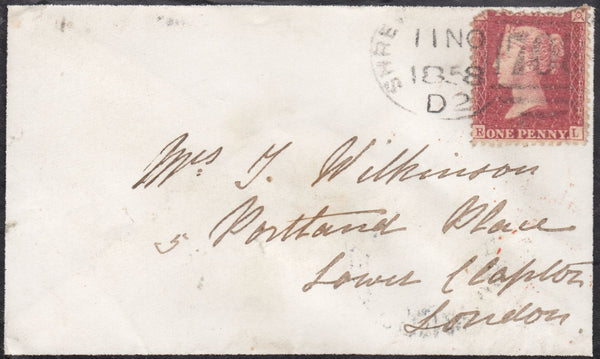 SHRE
11 NO
1858
D2
ONE PENNY
R L
Mrs J. Wilkinson
5 Portland Place
Lower Clapton
London.